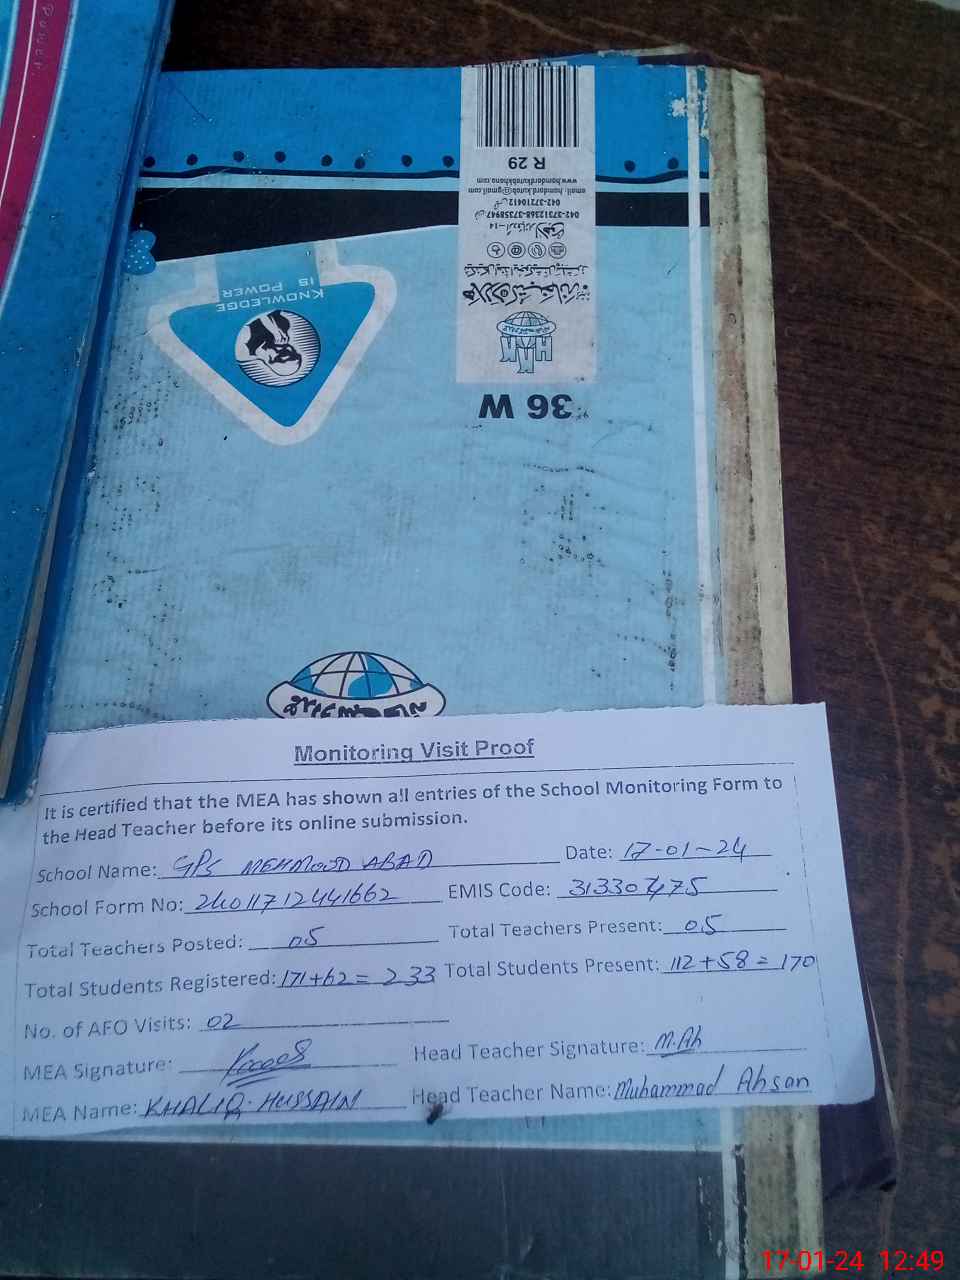 Power
R 29
www.hamdardkutabkhana.com
email: hamdard.kutab@gmail.com
042-37210612
042-37312368-37358947
KNOWLEDGE
IS
POWER
HKK
36 W
Monitoring Visit Proof
It is certified that the MEA has shown all entries of the School Monitoring Form to
the Head Teacher before its online submission.
School Name: GPS MEHMOOD ABAD Date: 17-01-24
School Form No: 2401171244 1662 EMIS Code: 31330475
Total Teachers Posted: 05 Total Teachers Present: 05
Total Students Registered: 171+62= 233 Total Students Present: 112+58= 170
No. of AFO Visits: 02
MEA Signature: Head Teacher Signature: M.Ah
MEA Name: KHALIQ HUSSAIN Head Teacher Name: Muhammad Ahsan
17-01-24 12:49